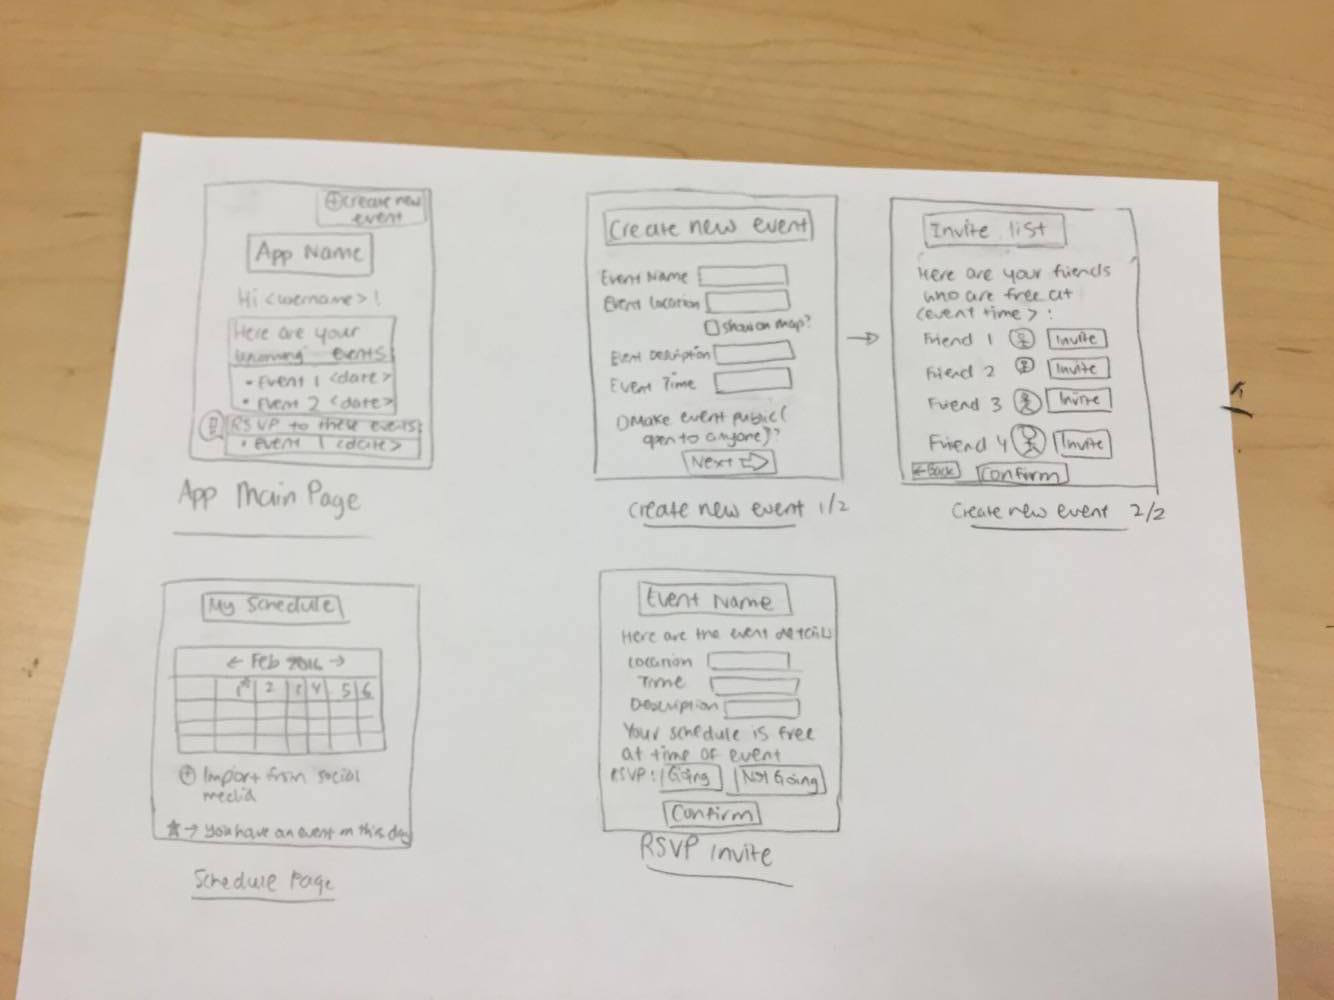 + create new
event
App Name
Hi <username>!
Here are your
upcoming events
• Event 1 <date>
• Event 2 <date>
RSVP to these events
• Event 1 <date>
App Main Page
Create new event
Event Name
Event Location
show on map?
Event Description
Event Time
Make event public (
open to anyone)?
Next
Create new event 1/2
Invite list
Here are your friends
who are free at
<event time>:
Friend 1 Invite
Friend 2 Invite
Friend 3 Invite
Friend 4 Invite
← Back Confirm
Create new event 2/2
My Schedule
← Feb 2016 →
1 2 3 4 5 6
+ Import from social
media
★ → You have an event on this day
Schedule Page
Event Name
Here are the event details
Location
Time
Description
Your schedule is free
at time of event
RSVP: Going Not Going
Confirm
RSVP invite